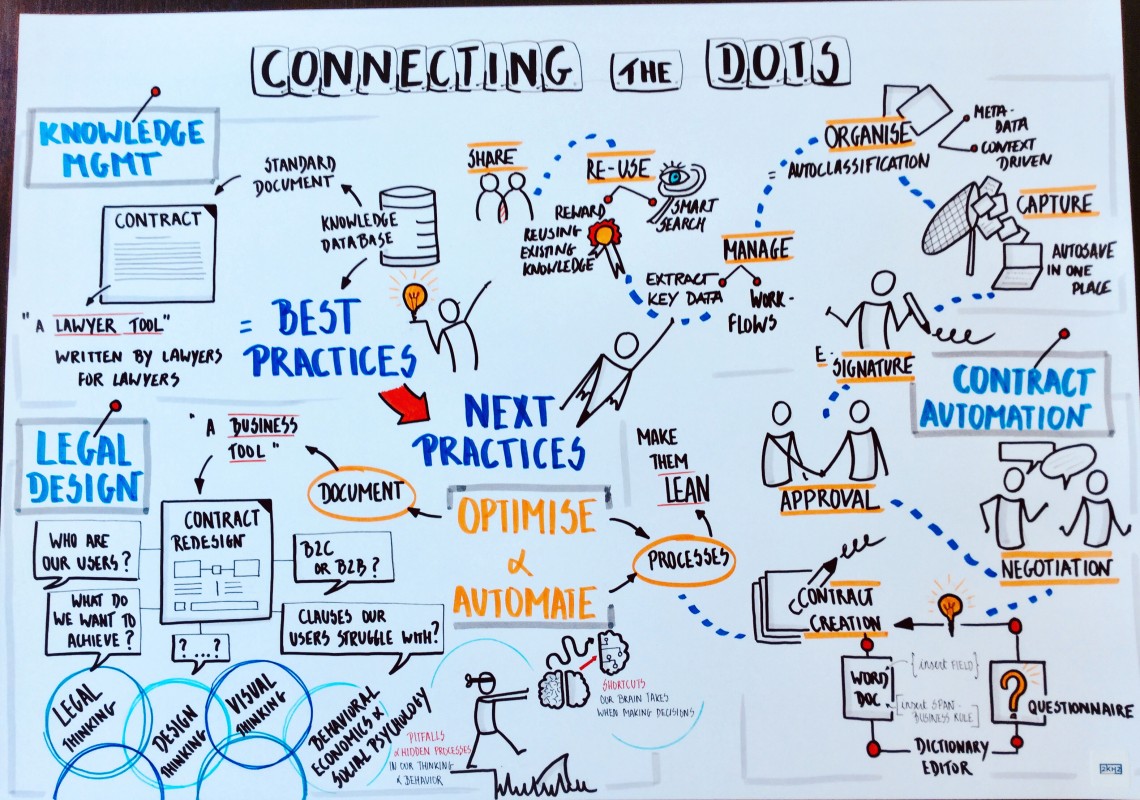 CONNECTING THE DOTS
KNOWLEDGE
MGMT
STANDARD
DOCUMENT
CONTRACT
KNOWLEDGE
DATABASE
"A LAWYER TOOL"
WRITTEN BY LAWYERS
FOR LAWYERS
= BEST
PRACTICES
NEXT
PRACTICES
SHARE
RE-USE
REWARD
REUSING
EXISTING
KNOWLEDGE
SMART
SEARCH
MANAGE
EXTRACT
KEY DATA
WORK-
FLOWS
ORGANISE
= AUTOCLASSIFICATION
META-
DATA
CONTEXT
DRIVEN
CAPTURE
AUTOSAVE
IN ONE
PLACE
E-SIGNATURE
CONTRACT
AUTOMATION
APPROVAL
NEGOTIATION
LEGAL
DESIGN
"A BUSINESS
TOOL"
DOCUMENT
CONTRACT
REDESIGN
WHO ARE
OUR USERS?
WHAT DO
WE WANT TO
ACHIEVE?
B2C
OR B2B?
CLAUSES OUR
USERS STRUGGLE WITH?
? ... ?
OPTIMISE
&
AUTOMATE
MAKE
THEM
LEAN
PROCESSES
CONTRACT
CREATION
WORD
DOC
[insert FIELD]
[insert SPAN-
BUSINESS RULE]
?
QUESTIONNAIRE
DICTIONARY
EDITOR
LEGAL
THINKING
DESIGN
THINKING
VISUAL
THINKING
BEHAVIORAL
ECONOMICS &
SOCIAL PSYCHOLOGY
PITFALLS
& HIDDEN PROCESSES
IN OUR THINKING
& BEHAVIOR
SHORTCUTS
OUR BRAIN TAKES
WHEN MAKING DECISIONS